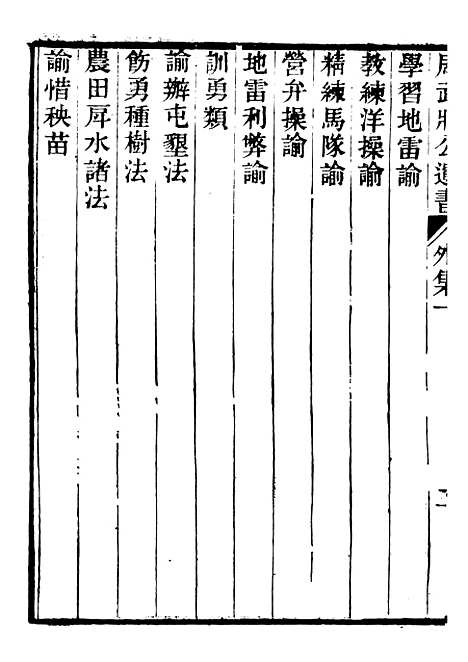 周武壯公遺書 外集一
學習地雷諭
教練洋操諭
精練馬隊諭
營弁操諭
地雷利弊諭
訓勇類
諭辦屯墾法
飭勇種樹法
農田戽水諸法
諭惜秧苗